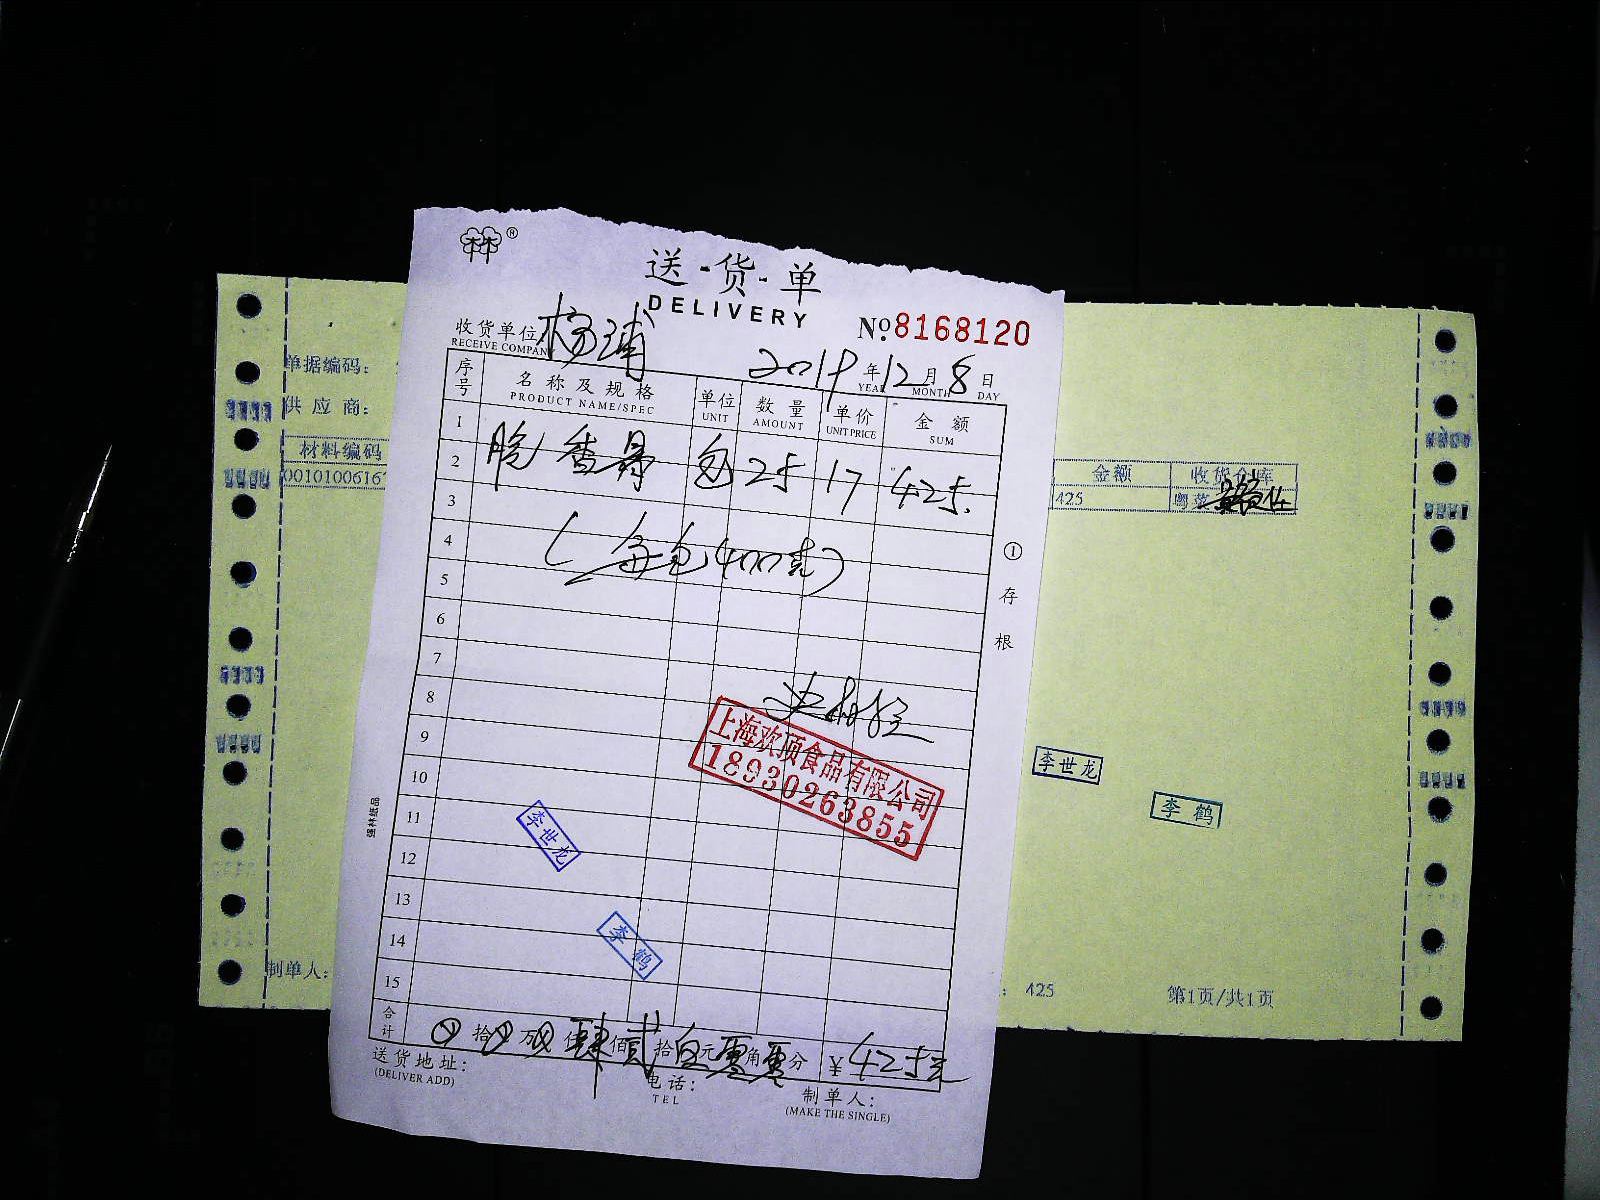 送-货-单
DELIVERY
№8168120
收货单位 杨浦
RECEIVE COMPANY
2019年12月8日
YEAR MONTH DAY
序号 名称及规格 单位 数量 单价 金额
PRODUCT NAME/SPEC UNIT AMOUNT UNIT PRICE SUM
1
2 脆香 包 25 17 425.
3
4 (每包(400克)
5
6
7
8
9
10
11
12
13
14
15
①存根
上海欢顶食品有限公司
18930263855
李世龙
李鹤
强林纸品
合计 拾 万 仟肆佰贰拾伍元零角零分 ¥425元
送货地址:
(DELIVER ADD)
电话:
TEL
制单人:
(MAKE THE SINGLE)
单据编码:
供应商:
材料编码
00101006167
制单人:
金额 收货仓库
425 粤菜
李世龙
李鹤
: 425
第1页/共1页